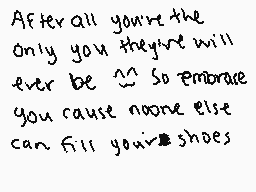 After all you're the
only you they're will
ever be ^^ So embrace
you cause noone else
can fill your shoes